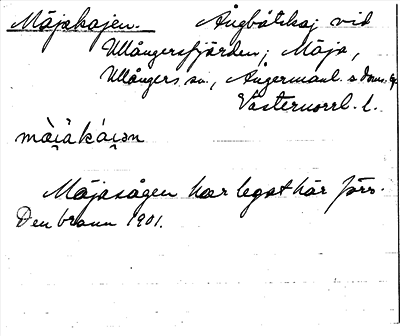 Mäjakajen. Ångbåtskaj vid
Ullångersfjärden; Mäja,
Ullångers sn., Ångermanl. s doms.,
Västernorrl. l.
mà̀i̯ākái̯ən
Mäjasågen har legat här förr.
Den brann 1901.